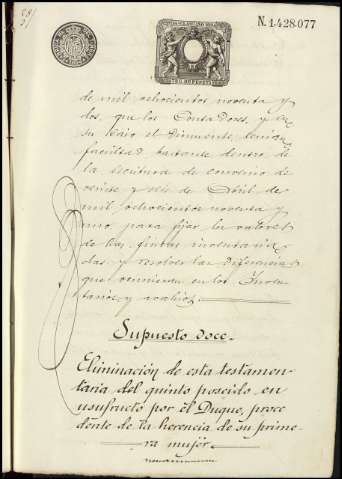 N. 1.428.077
de mil ochocientos noventa y
dos, que los Contadores, y en
su caso el Dirimente, tenian
facultad bastante dentro de
la escritura de convenio de
veinte y seis de Abril de
mil ochocientos noventa y
uno para fijar los valores
de las fincas inventaria
das, y resolver las diferencias
que
en los Inven
tarios y avaluos.
Supuesto doce.
Eliminación de esta testamen-
taria del quinto poseido en
usufructo por el Duque, proce
dente de la herencia de su prime-
ra mujer.